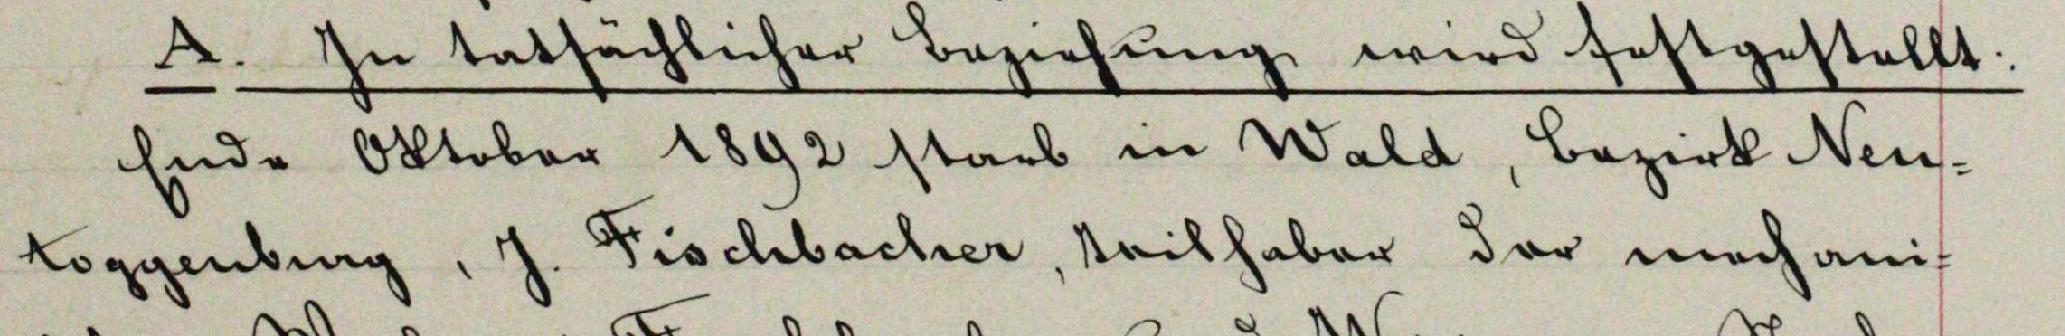 A. In tatsächlicher Beziehung wird festgestellt:
Ende Oktober 1892 starb in Wald, Bezirk Neu-
toggenburg, J. Fischbacher, Teilhaber der mechani-